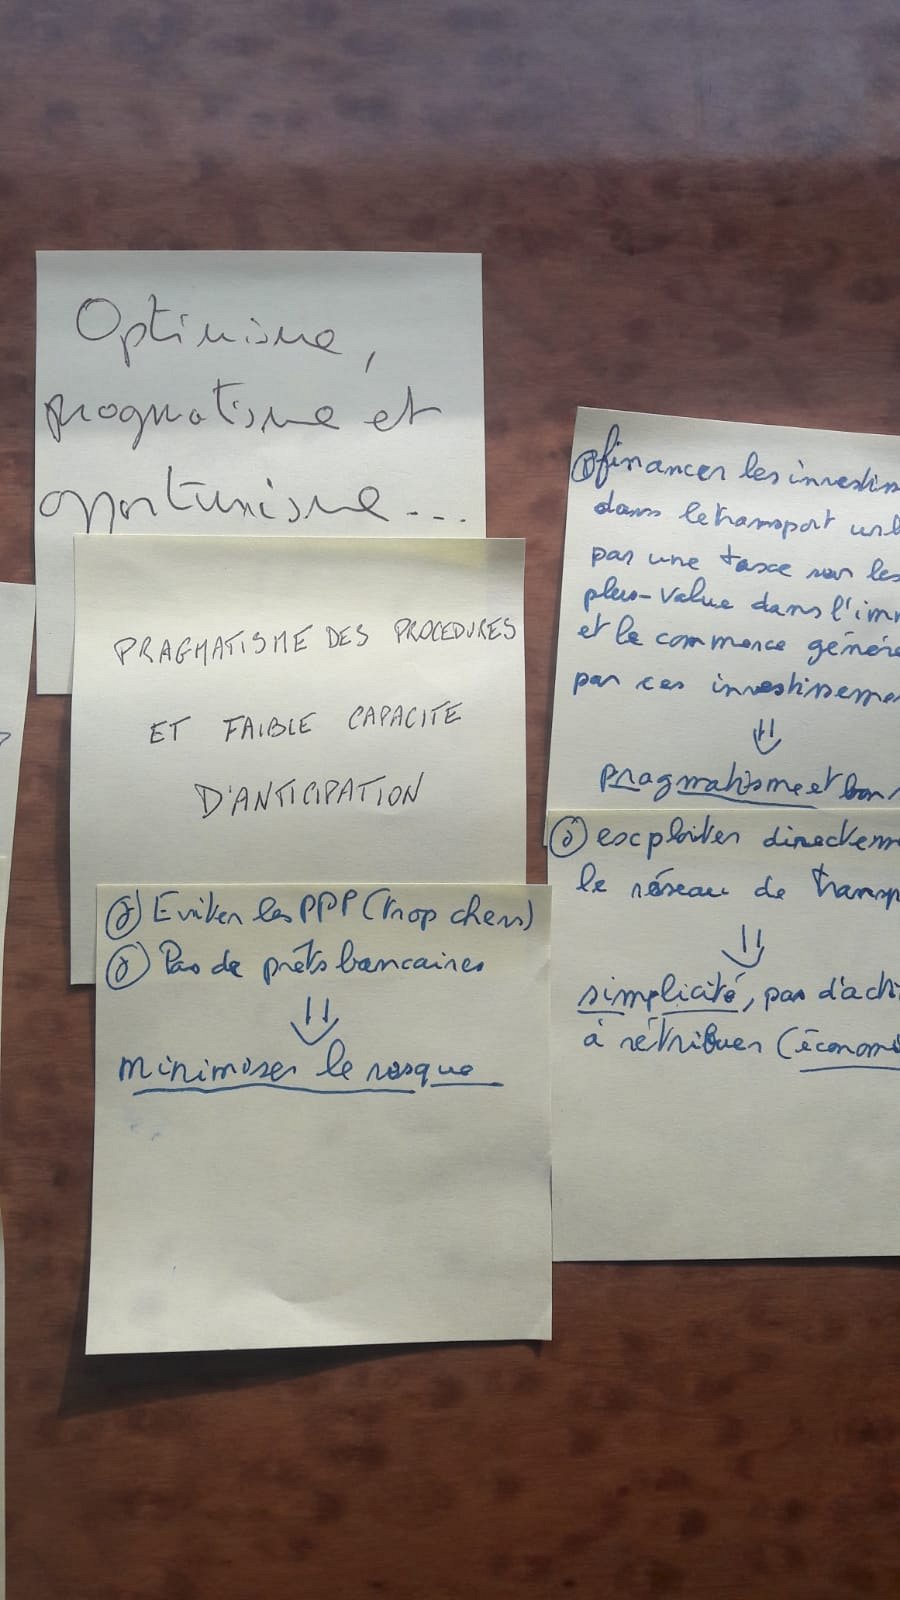 Optimisme,
pragmatisme et
opportunisme...
PRAGMATISME DES PROCEDURES
ET FAIBLE CAPACITE
D'ANTICIPATION
Eviter les PPP (trop chers)
Pas de prêts bancaires
⇓
minimiser le risque
financer les investiss
dans le transport urb
par une taxe sur les
plus-value dans l'imm
et le commerce génére
par ces investisseme
⇓
pragmatisme et bon
exploiter directem
le réseau de transp
⇓
simplicité, pas d'acti
à rétribuer (économi